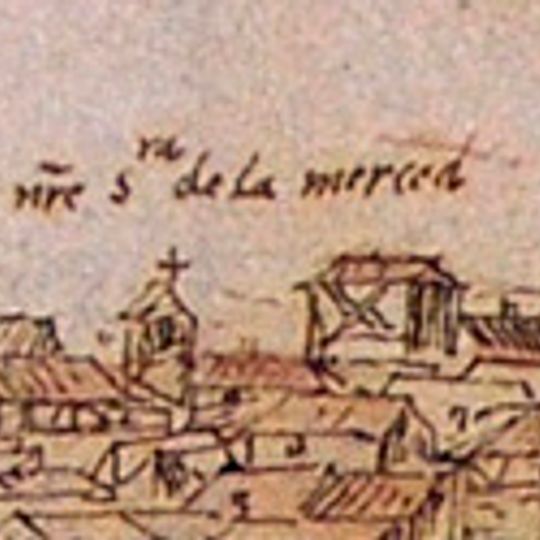 nr̄e Sra de la merced